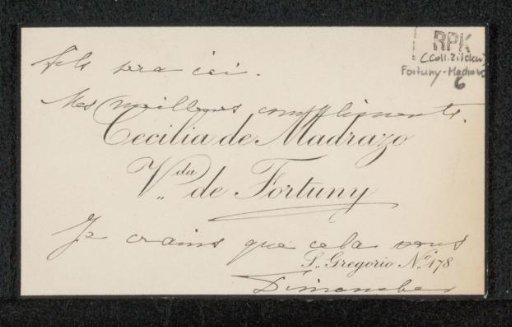 RPK
(Coll. Zilcken)
Fortuny-Madrazo
6
fils sera ici.
Mes meilleurs compliments.
Cecilia de Madrazo
Vda de Fortuny
Je crains que cela vous
S. Gregorio No. 178